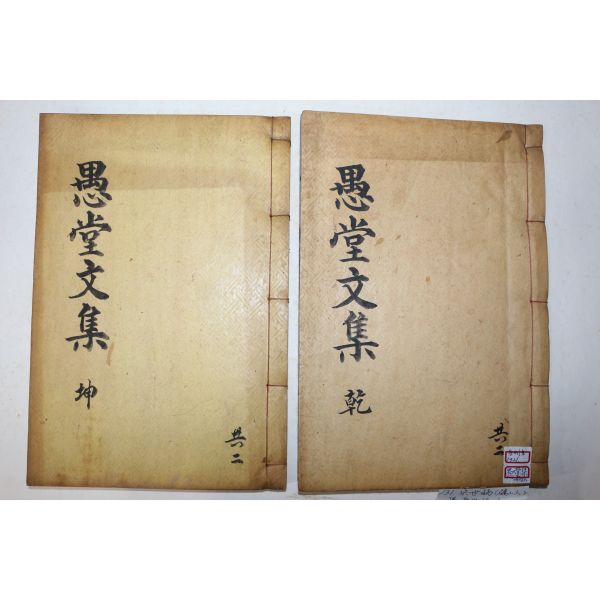 愚堂文集 坤
共二
愚堂文集 乾
共二